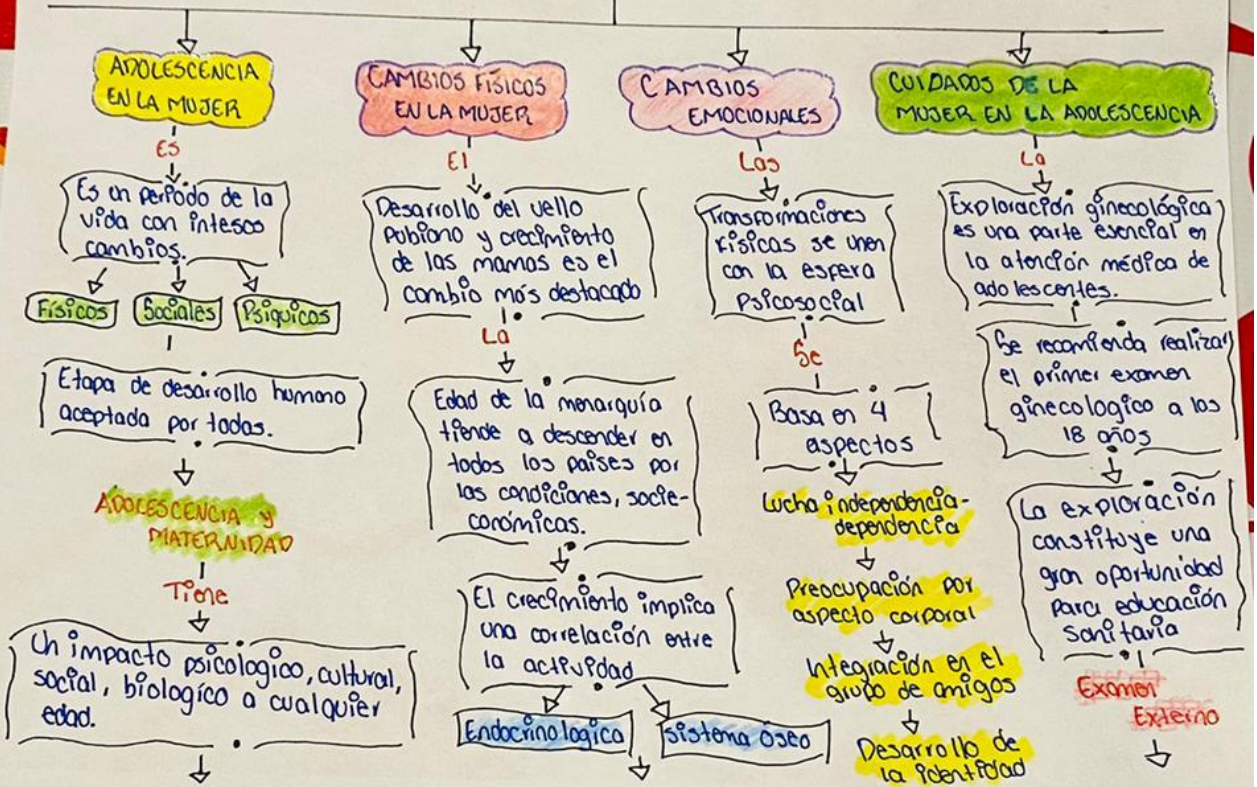 ADOLESCENCIA
EN LA MUJER
ES
Es un período de la
vida con intesos
cambios.
Físicos
Sociales
Psíquicos
Etapa de desarrollo humano
aceptada por todas.
ADOLESCENCIA y
MATERNIDAD
Tiene
Un impacto psicologico, cultural,
social, biologíco a cualquier
edad.
CAMBIOS FÍSICOS
EN LA MUJER
El
Desarrollo del vello
pubiano y crecimiento
de las mamas es el
cambio más destacado
La
Edad de la menarquía
tiende a descender en
todos los países por
las condiciones, socie-
conómicas.
El crecimiento implica
una correlación entre
la actividad
Endocrinologica
sistema Óseo
CAMBIOS
EMOCIONALES
Las
Transformaciones
físicas se unen
con la esfera
Psicosocial
Se
Basa en 4
aspectos
Lucha independencia-
dependencia
Preocupación por
aspecto corporal
Integración en el
grupo de amigos
Desarrollo de
la identidad
CUIDADOS DE LA
MUJER EN LA ADOLESCENCIA
La
Exploración ginecológica
es una parte esencial en
la atención médica de
adolescentes.
Se recomienda realizar
el primer examen
ginecologico a los
18 años
La exploración
constituye una
gran oportunidad
para educación
sanitaria
Examen
Externo